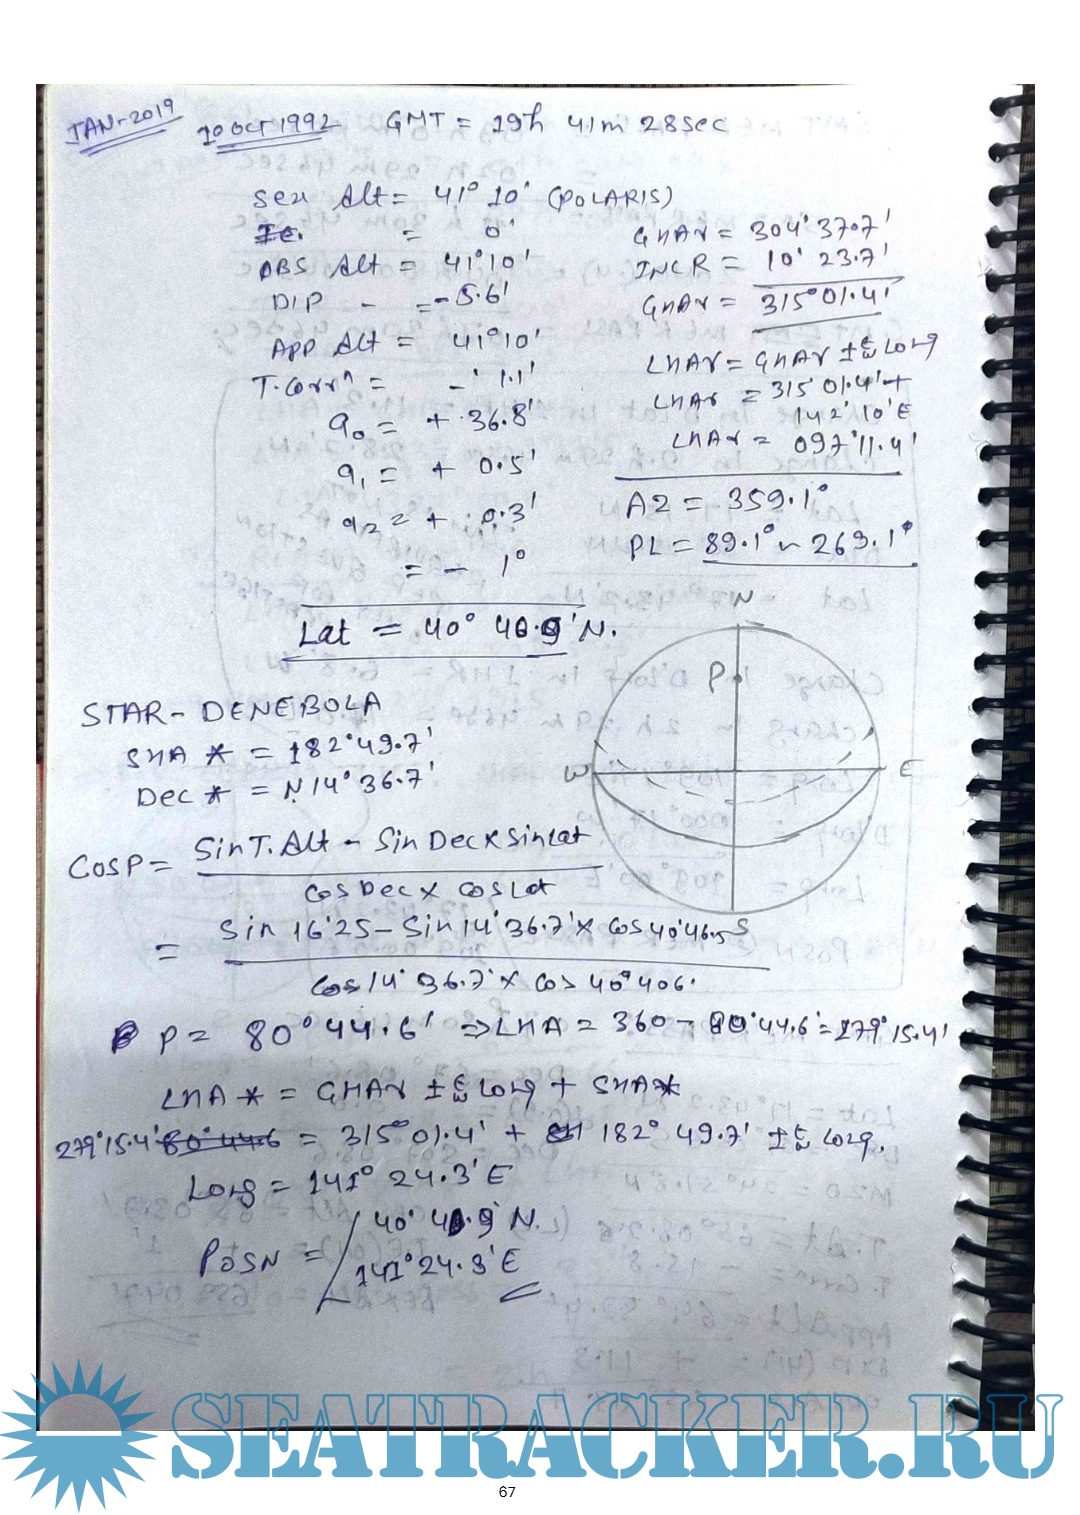 JAN-2019
10 OCT 1992 GMT = 19h 41m 28sec
Sex Alt = 41° 10' (POLARIS)
I.e. = 0'
OBS Alt = 41° 10'
DIP - = -5.6'
App Alt = 41° 10'
T. Corrⁿ = - 1.1'
a₀ = + 36.8'
a₁ = + 0.5'
a₂ = + 0.3'
= - 1°
Lat = 40° 46.9' N.
GHAγ = 304° 37.7'
INCR = 10° 23.7'
GHAγ = 315° 01.4'
LHAγ = GHAγ ± E/W Long
LHAγ = 315° 01.4' +
142° 10' E
LHAγ = 097° 11.4'
AZ = 359.1°
PL = 89.1° ~ 269.1°
N
P
W
E
S
STAR - DENEBOLA
SHA * = 182° 49.7'
Dec * = N 14° 36.7'
COSP = Sin T. Alt - Sin Dec x Sin Lat
Cos Dec x Cos Lat
= Sin 16° 25 - Sin 14° 36.7' x Cos 40° 46.5
Cos 14° 36.7' x Cos 40° 406.
P = 80° 44.6' ⇒ LHA = 360 - 80° 44.6' = 279° 15.4'
LHA * = GHAγ ± E/W Long + SHA*
279° 15.4' 80° 44.6 = 315° 01.4' + 182° 49.7' ± E/W Long.
Long = 141° 24.3' E
POSN = 40° 46.9' N.
141° 24.3' E
SEATRACKER.RU
67